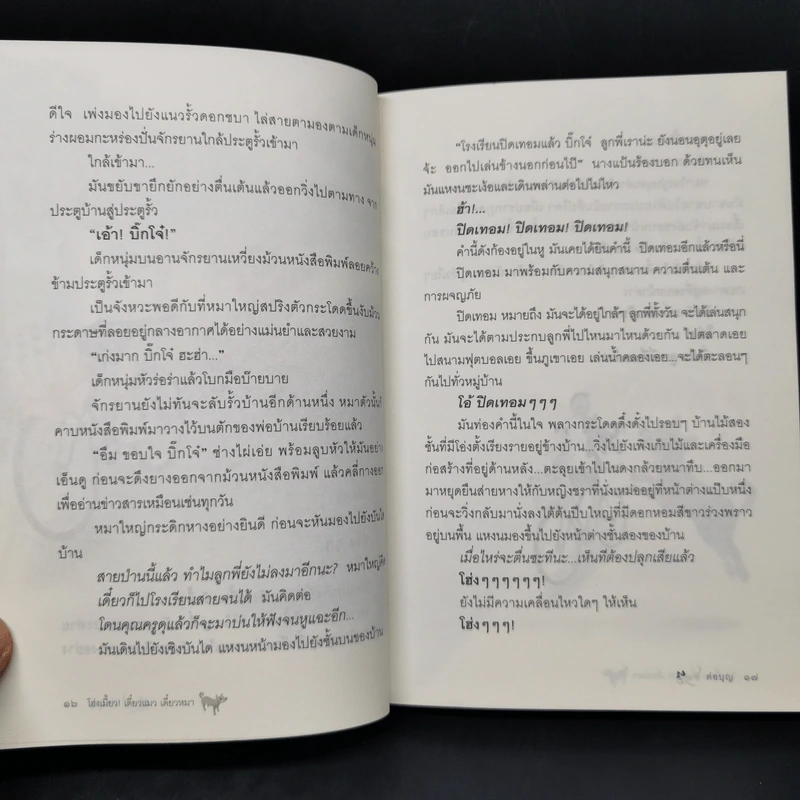 ดีใจ เพ่งมองไปยังแนวรั้วดอกชบา ไล่สายตามองตามเด็กหนุ่ม
ร่างผอมกะหร่องปั่นจักรยานใกล้ประตูรั้วเข้ามา
ใกล้เข้ามา...
มันขยับขายึกยักอย่างตื่นเต้นแล้วออกวิ่งไปตามทาง จาก
ประตูบ้านสู่ประตูรั้ว
“เอ้า! บิ๊กโจ๋!”
เด็กหนุ่มบนอานจักรยานเหวี่ยงม้วนหนังสือพิมพ์ลอยคว้าง
ข้ามประตูรั้วเข้ามา
เป็นจังหวะพอดีกับที่หมาใหญ่สปริงตัวกระโดดขึ้นงับม้วน
กระดาษที่ลอยอยู่กลางอากาศได้อย่างแม่นยำและสวยงาม
“เก่งมาก บิ๊กโจ๋ ฮะฮ่า...”
เด็กหนุ่มหัวร่อร่าแล้วโบกมือบ๊ายบาย
จักรยานยังไม่ทันจะลับรั้วบ้านอีกด้านหนึ่ง หมาตัวนั้นก็
คาบหนังสือพิมพ์มาวางไว้บนตักของพ่อบ้านเรียบร้อยแล้ว
“อืม ขอบใจ บิ๊กโจ๋” ช่างไผ่เอ่ย พร้อมลูบหัวให้มันอย่าง
เอ็นดู ก่อนจะดึงยางออกจากม้วนหนังสือพิมพ์ แล้วคลี่กางออก
เพื่ออ่านข่าวสารเหมือนเช่นทุกวัน
หมาใหญ่กระดิกหางอย่างยินดี ก่อนจะหันมองไปยังบันได
บ้าน
สายป่านนี้แล้ว ทำไมลูกพี่ยังไม่ลงมาอีกนะ? หมาใหญ่คิด
เดี๋ยวก็ไปโรงเรียนสายจนได้ มันคิดต่อ
โดนคุณครูดุแล้วก็จะมาบ่นให้ฟังจนหูแฉะอีก...
มันเดินไปยังเชิงบันได แหงนหน้ามองไปยังชั้นบนของบ้าน
๑๖ โฮ่งเมี้ยว! เดี๋ยวแมว เดี๋ยวหมา
“โรงเรียนปิดเทอมแล้ว บิ๊กโจ๋ ลูกพี่เราน่ะ ยังนอนอุตุอยู่เลย
จ้ะ ออกไปเล่นข้างนอกก่อนไป๊” นางแป้นร้องบอก ด้วยทนเห็น
มันแหงนชะเง้อและเดินพล่านต่อไปไม่ไหว
ฮ้า!...
ปิดเทอม! ปิดเทอม! ปิดเทอม!
คำนี้ดังก้องอยู่ในหู มันเคยได้ยินคำนี้ ปิดเทอมอีกแล้วหรือนี่
ปิดเทอม มาพร้อมกับความสนุกสนาน ความตื่นเต้น และ
การผจญภัย
ปิดเทอม หมายถึง มันจะได้อยู่ใกล้ๆ ลูกพี่ทั้งวัน จะได้เล่นสนุก
กัน มันจะได้ตามประกบลูกพี่ไปไหนมาไหนด้วยกัน ไปตลาดเอย
ไปสนามฟุตบอลเอย ขึ้นภูเขาเอย เล่นน้ำคลองเอย...จะได้ตะลอนๆ
กันไปทั่วหมู่บ้าน
โอ้ ปิดเทอมๆๆๆ
มันท่องคำนี้ในใจ พลางกระโดดดึ๋งดั๋งไปรอบๆ บ้านไม้สอง
ชั้นที่มีโอ่งตั้งเรียงรายอยู่ข้างบ้าน...วิ่งไปยังเพิงเก็บไม้และเครื่องมือ
ก่อสร้างที่อยู่ด้านหลัง...ตะลุยเข้าไปในดงกล้วยหนาทึบ...ออกมา
มาหยุดยืนส่ายหางให้กับหญิงชราที่นั่งเหม่ออยู่ที่หน้าต่างแป๊บหนึ่ง
ก่อนจะวิ่งกลับมานั่งลงใต้ต้นปีบใหญ่ที่มีดอกหอมสีขาวร่วงพราว
อยู่บนพื้น แหงนมองขึ้นไปยังหน้าต่างชั้นสองของบ้าน
เมื่อไหร่จะตื่นซะทีนะ...เห็นทีต้องปลุกเสียแล้ว
โฮ่งๆๆๆๆๆๆ!
ยังไม่มีความเคลื่อนไหวใดๆ ให้เห็น
โฮ่งๆๆๆ!
ต่อบุญ ๑๗